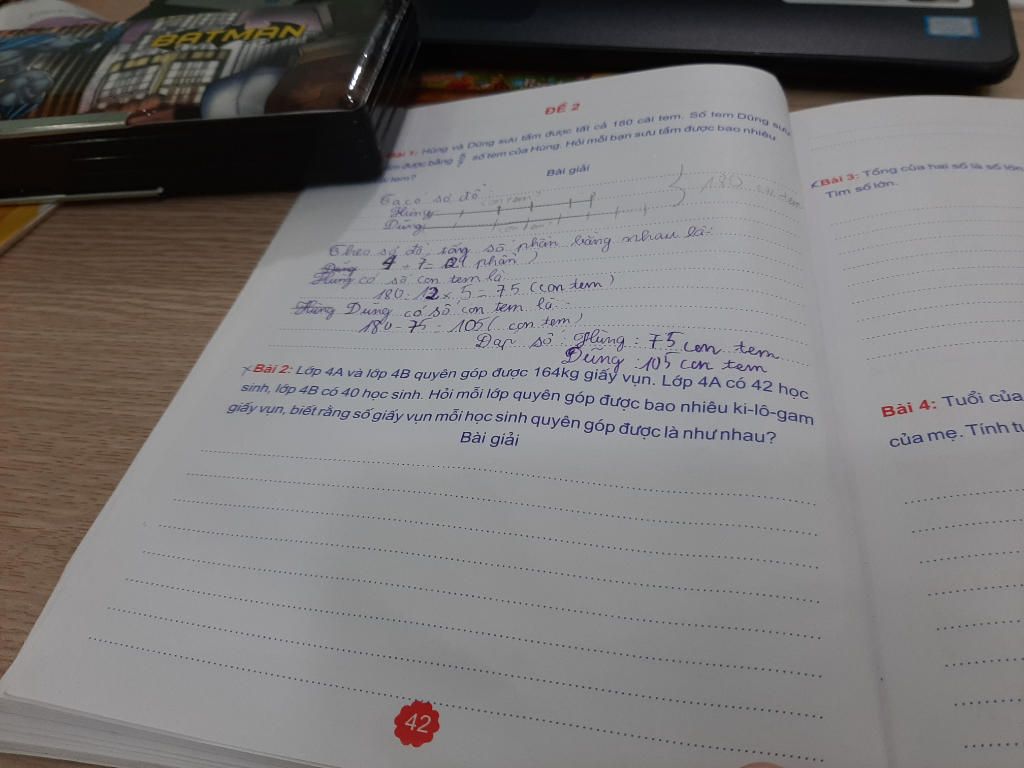 BATMAN
ĐỀ 2
Bài 1: Hùng và Dũng sưu tầm được tất cả 180 cái tem. Số tem Dũng sưu
được bằng số tem của Hùng. Hỏi mỗi bạn sưu tầm được bao nhiêu
tem?
Bài giải
Ta có sơ đồ:
Hùng
Dũng
180 con tem
Theo sơ đồ, tổng số phần bằng nhau là:
+ 7 = 12 (phần)
Hùng có số con tem là
180 : 12 x 5 = 75 (con tem)
Dũng có số con tem là:
180 - 75 = 105 (con tem)
Đáp số: Hùng: 75 con tem
Dũng: 105 con tem
Bài 2: Lớp 4A và lớp 4B quyên góp được 164kg giấy vụn. Lớp 4A có 42 học
sinh, lớp 4B có 40 học sinh. Hỏi mỗi lớp quyên góp được bao nhiêu ki-lô-gam
giấy vụn, biết rằng số giấy vụn mỗi học sinh quyên góp được là như nhau?
Bài giải
42
Bài 3: Tổng của hai số là số lớn
Tìm số lớn.
Bài 4: Tuổi của
của mẹ. Tính